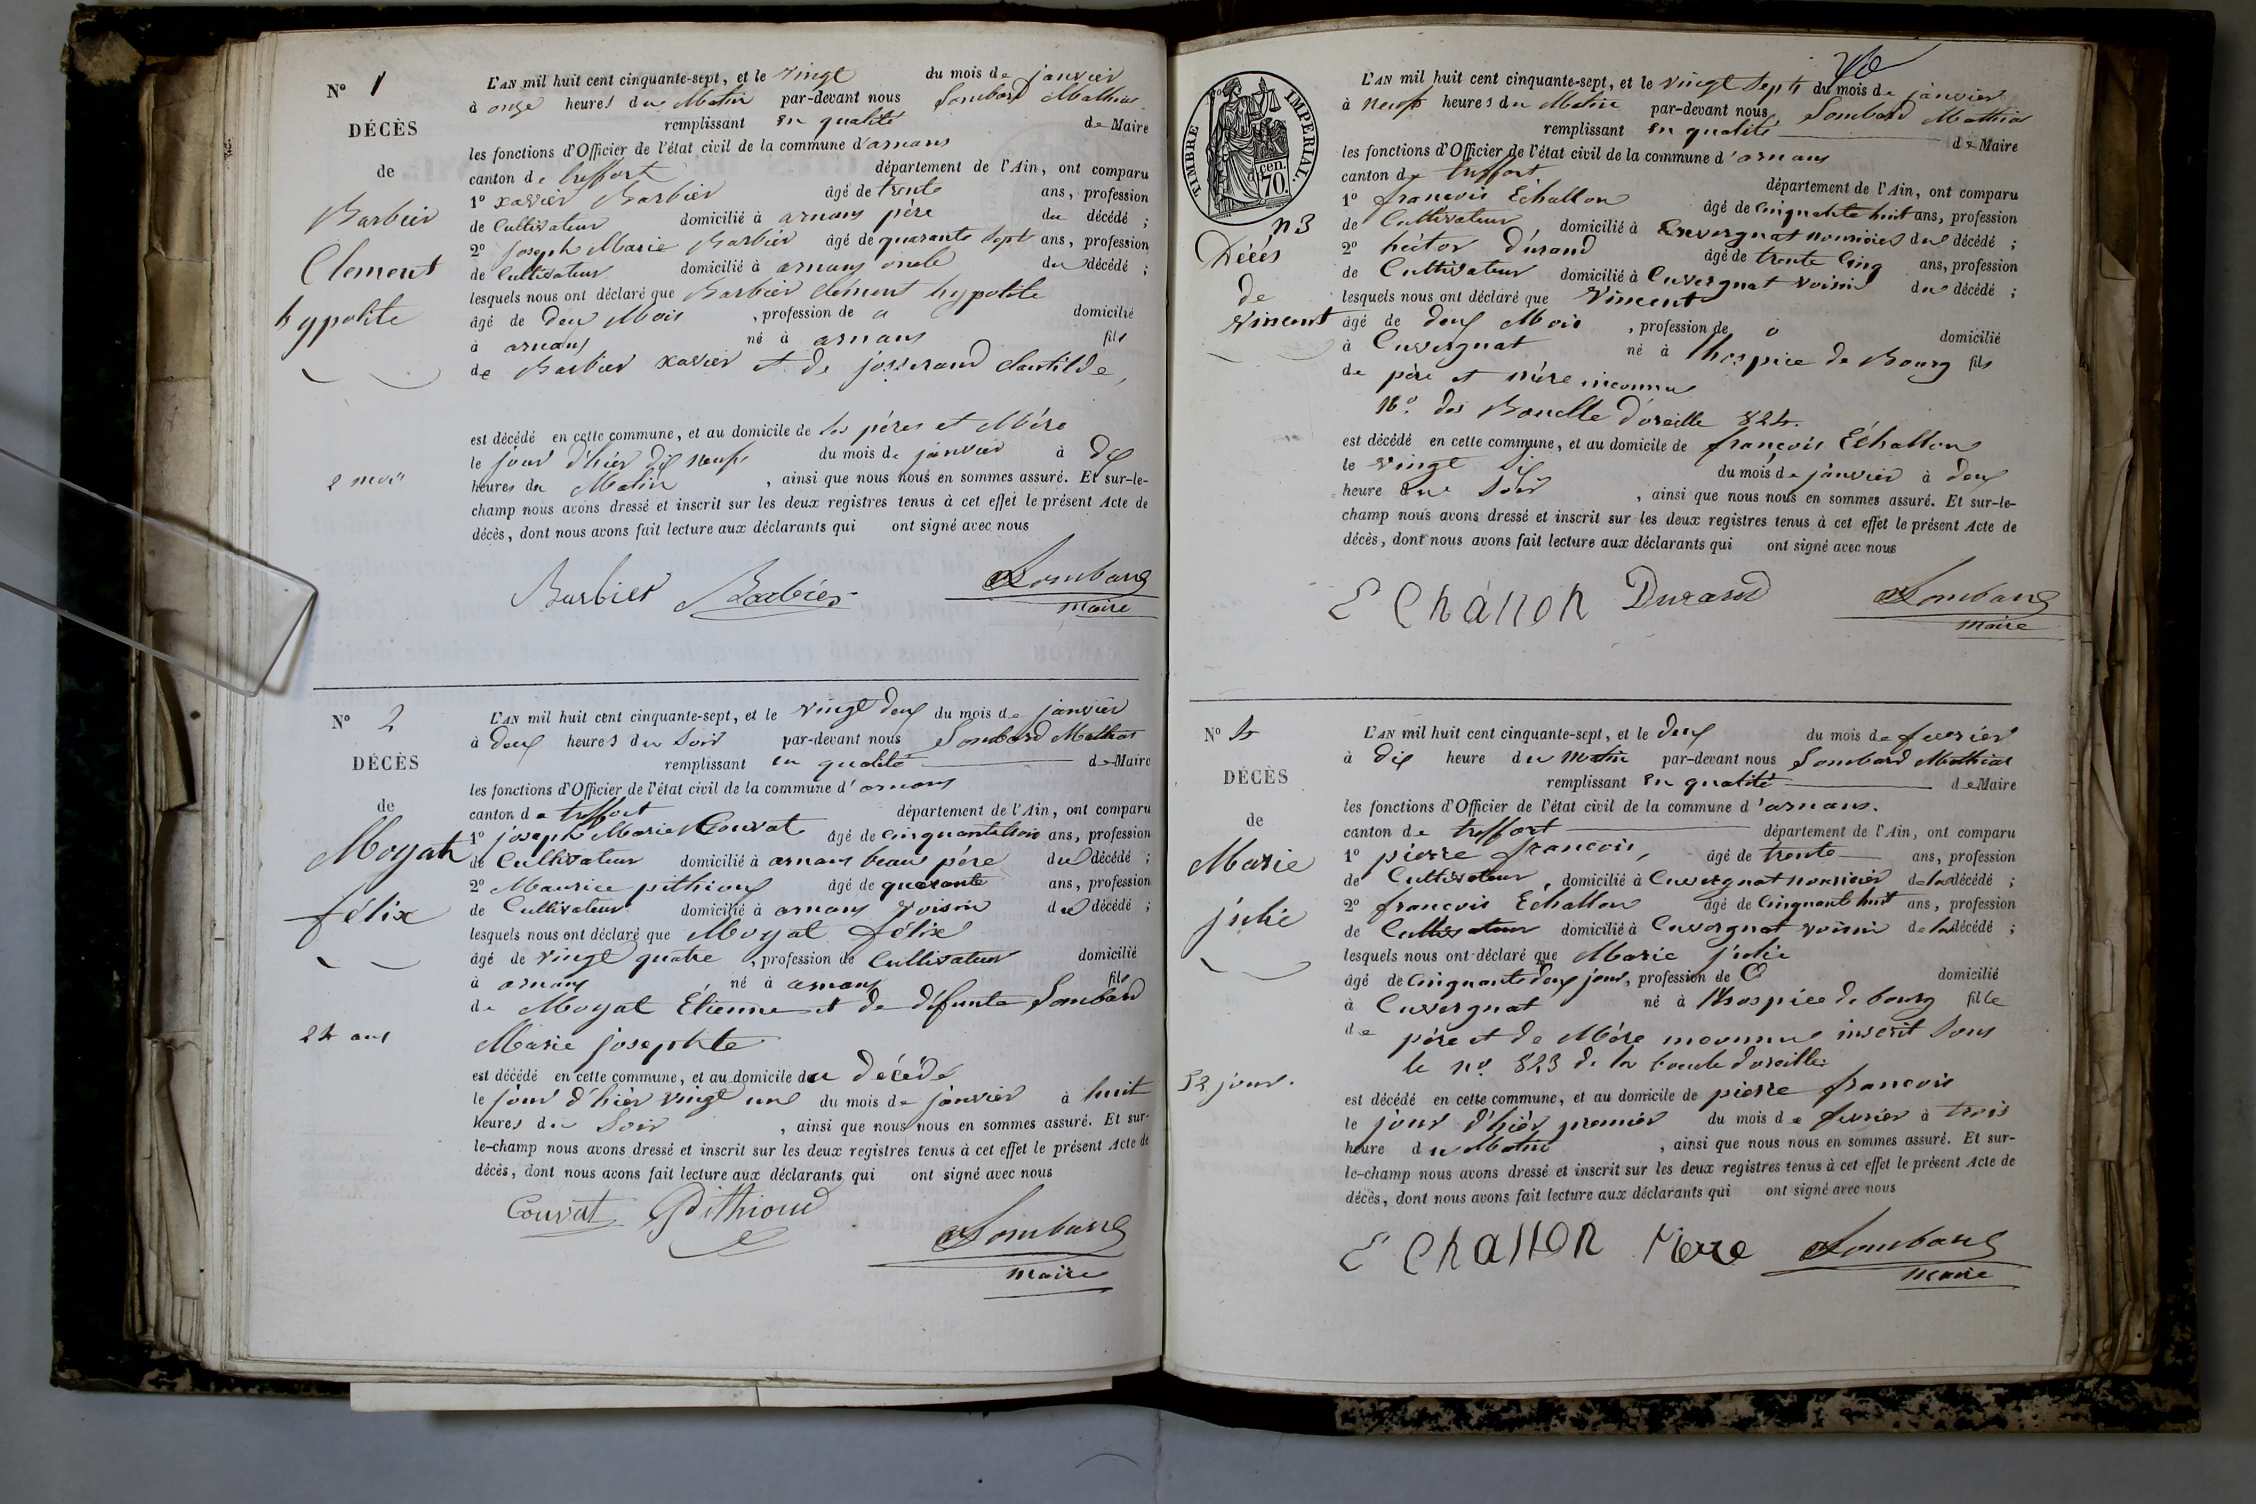 N° 1
DÉCÈS
de
Barbier
Clement
hypolite
2 mois
L'AN mil huit cent cinquante-sept, et le vingt du mois de janvier
à onze heures du Matin par-devant nous Lombard Mathias
remplissant en qualité de Maire
les fonctions d'Officier de l'état civil de la commune d'arnans
canton de treffort département de l'Ain, ont comparu
1° xavier Barbier âgé de trente ans, profession
de Cultivateur domicilié à arnans père du décédé ;
2° Joseph Marie Barbier âgé de quarante sept ans, profession
de Cultivateur domicilié à arnans oncle du décédé ;
lesquels nous ont déclaré que Barbier clément hypolite
âgé de deux Mois , profession de domicilié
à arnans né à arnans fils
de Barbier xavier et de josserand clautilde,
est décédé en cette commune, et au domicile de les pères et Mère
le jour d'hièr dix neufs du mois de janvier à dix
heures du Matin , ainsi que nous nous en sommes assuré. Et sur-le-
champ nous avons dressé et inscrit sur les deux registres tenus à cet effet le présent Acte de
décès, dont nous avons fait lecture aux déclarants qui ont signé avec nous
Barbier Barbier Lombard
maire
N° 2
DÉCÈS
de
Moyat
félix
24 ans
L'AN mil huit cent cinquante-sept, et le vingt deux du mois de janvier
à deux heures du Soir par-devant nous Lombard Mathias
remplissant en qualité de Maire
les fonctions d'Officier de l'état civil de la commune d'arnans
canton de treffort département de l'Ain, ont comparu
1° joseph Marie Convat âgé de cinquante trois ans, profession
de Cultivateur domicilié à arnans beau père du décédé ;
2° Maurice pithioux âgé de quarante ans, profession
de Cultivateur domicilié à arnans voisin du décédé ;
lesquels nous ont déclaré que Moyat félix
âgé de vingt quatre , profession de Cultivateur domicilié
à arnans né à arnans fils
de Moyat Étienne et de défunte Lombard
Marie josephte
est décédé en cette commune, et au domicile du décédé
le jour d'hièr vingt une du mois de janvier à huit
heures du Soir , ainsi que nous nous en sommes assuré. Et sur-
le-champ nous avons dressé et inscrit sur les deux registres tenus à cet effet le présent Acte de
décès, dont nous avons fait lecture aux déclarants qui ont signé avec nous
Convat Pithioud
Lombard
maire
TIMBRE IMPERIAL.
70. cen.
n 3
Décés
de
Vincent
L'AN mil huit cent cinquante-sept, et le vingt sept du mois de janvier
à neufs heures du Matin par-devant nous Lombard Mathias
remplissant en qualité de Maire
les fonctions d'Officier de l'état civil de la commune d'arnans
canton de treffort département de l'Ain, ont comparu
1° francois Échallon âgé de cinquante huit ans, profession
de Cultivateur domicilié à Cuvergnat nouricier du décédé ;
2° héctor durand âgé de trente Cinq ans, profession
de Cultivateur domicilié à Cuvergnat voisin du décédé ;
lesquels nous ont déclaré que Vincent
âgé de deux Mois , profession de o domicilié
à Cuvergnat né à lhospice de Bourg fils
de père et mère inconnu
N°. des Boucle d'oreille 824.
est décédé en cette commune, et au domicile de françois Échallon
le vingt six du mois de janvier à deux
heure du Soir , ainsi que nous nous en sommes assuré. Et sur-le-
champ nous avons dressé et inscrit sur les deux registres tenus à cet effet le présent Acte de
décès, dont nous avons fait lecture aux déclarants qui ont signé avec nous
EChallon Durand Lombard
maire
N° 4
DÉCÈS
de
Marie
julie
52 jours.
L'AN mil huit cent cinquante-sept, et le deux du mois de fevrier
à dix heure du Matin par-devant nous Lombard Mathias
remplissant en qualité de Maire
les fonctions d'Officier de l'état civil de la commune d'arnans.
canton de treffort département de l'Ain, ont comparu
1° pierre francois, âgé de trente ans, profession
de Cultivateur, domicilié à Cuvergnat nouricier de la décédé ;
2° francois Échallon âgé de Cinquante huit ans, profession
de Cultivateur domicilié à Cuvergnat voisin de la décédé ;
lesquels nous ont déclaré que Marie julie
âgé de Cinquante deux jours, profession de O domicilié
à Cuvergnat né à l'hospice de bourg fille
de père et de Mère inconnue inscrit sous
le n°. 823 de la boucle d'oreille.
est décédé en cette commune, et au domicile de pierre francois
le jour d'hièr premier du mois de fevrier à trois
heure du Matin , ainsi que nous nous en sommes assuré. Et sur-
le-champ nous avons dressé et inscrit sur les deux registres tenus à cet effet le présent Acte de
décès, dont nous avons fait lecture aux déclarants qui ont signé avec nous
EChallon Pierre Lombard
maire